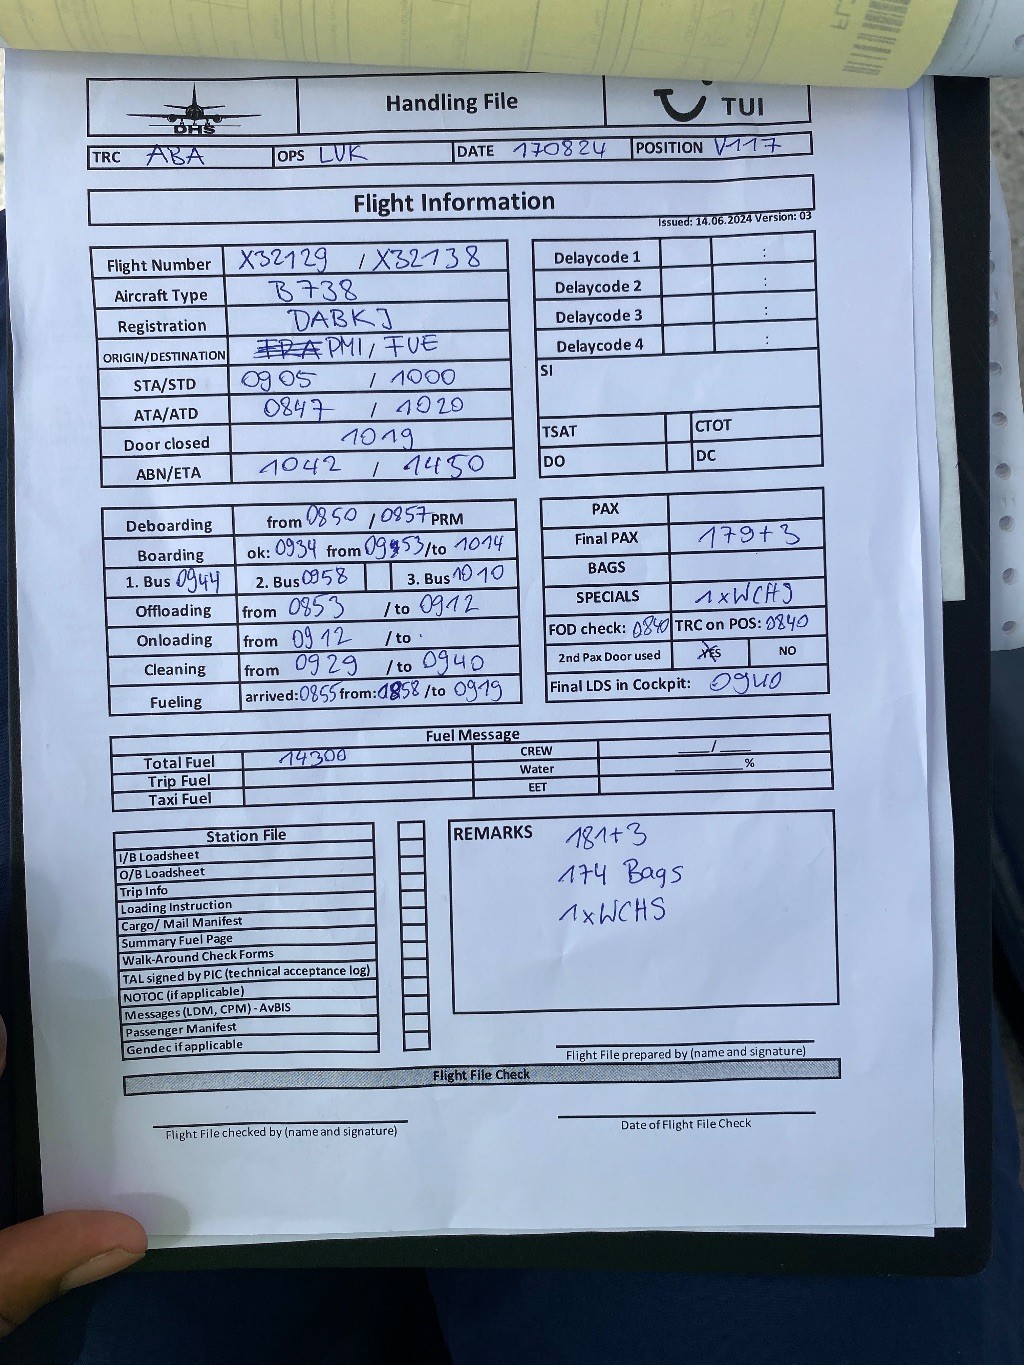 DHS
Handling File
TUI
TRC ABA OPS LUK DATE 170824 POSITION V117
Flight Information
Issued: 14.06.2024 Version: 03
Flight Number X32129 / X32138
Aircraft Type B738
Registration DABKJ
ORIGIN/DESTINATION FRA PMI / FUE
STA/STD 0905 / 1000
ATA/ATD 0847 / 1020
Door closed 1019
ABN/ETA 1042 / 1450
Delaycode 1 :
Delaycode 2 :
Delaycode 3 :
Delaycode 4 :
SI
TSAT CTOT
DO DC
Deboarding from 0850 / 0857 PRM
Boarding ok: 0934 from 0953 /to 1014
1. Bus 0944 2. Bus 0958 3. Bus 1010
Offloading from 0853 /to 0912
Onloading from 0912 /to
Cleaning from 0929 /to 0940
Fueling arrived: 0855 from: 0858 /to 0919
PAX
Final PAX 179+3
BAGS
SPECIALS 1xWCHS
FOD check: 0840 TRC on POS: 0840
2nd Pax Door used YES NO
Final LDS in Cockpit: 0940
Fuel Message
Total Fuel 14300 CREW ___/___
Trip Fuel Water ______%
Taxi Fuel EET
Station File
I/B Loadsheet
O/B Loadsheet
Trip Info
Loading Instruction
Cargo/ Mail Manifest
Summary Fuel Page
Walk-Around Check Forms
TAL signed by PIC (technical acceptance log)
NOTOC (if applicable)
Messages (LDM, CPM) - AvBIS
Passenger Manifest
Gendec if applicable
REMARKS 181+3
174 Bags
1xWCHS
Flight File prepared by (name and signature)
Flight File Check
Flight File checked by (name and signature)
Date of Flight File Check